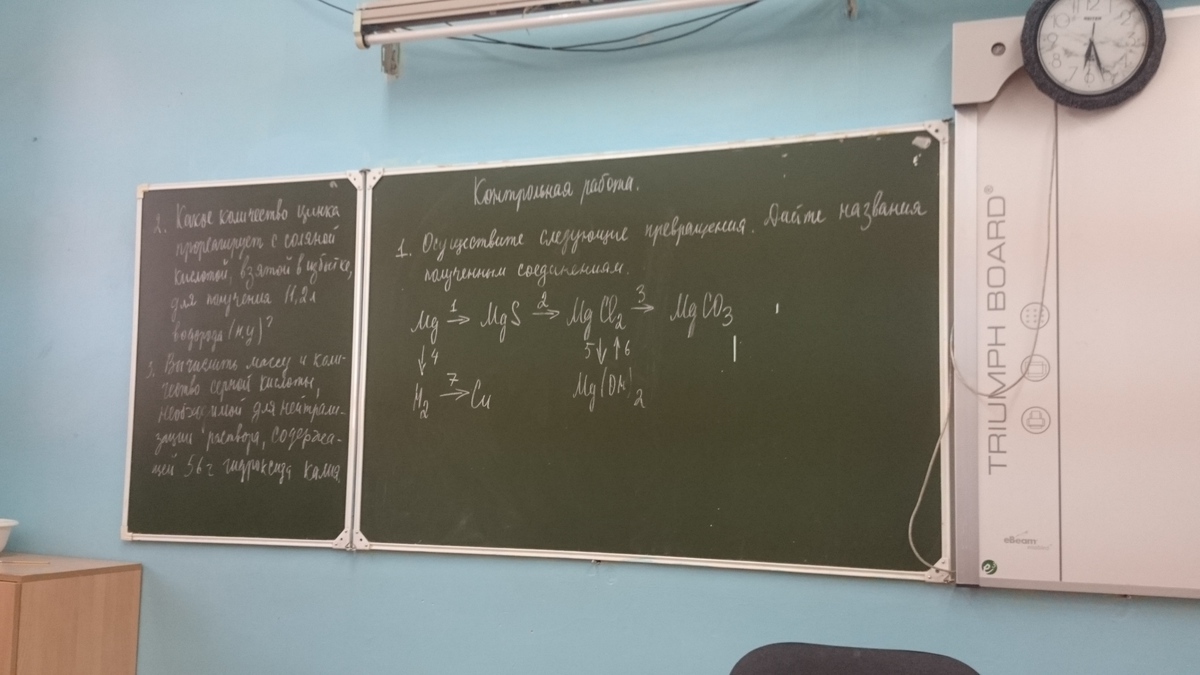 2. Какое количество цинка
прореагирует с соляной
кислотой, взятой в избытке,
для получения 11,2 л
водорода (н.у)?
3. Вычислить массу и коли-
чество серной кислоты,
необходимой для нейтрали-
зации раствора, содержа-
щей 56 г гидроксида калия
Контрольная работа.
1. Осуществите следующие превращения. Дайте названия
полученным соединениям.
Mg 1→ MgS 2→ MgCl2 3→ MgCO3
↓4 5↓↑6
H2 7→ Cu Mg(OH)2
TRIUMPH BOARD®
eBeam